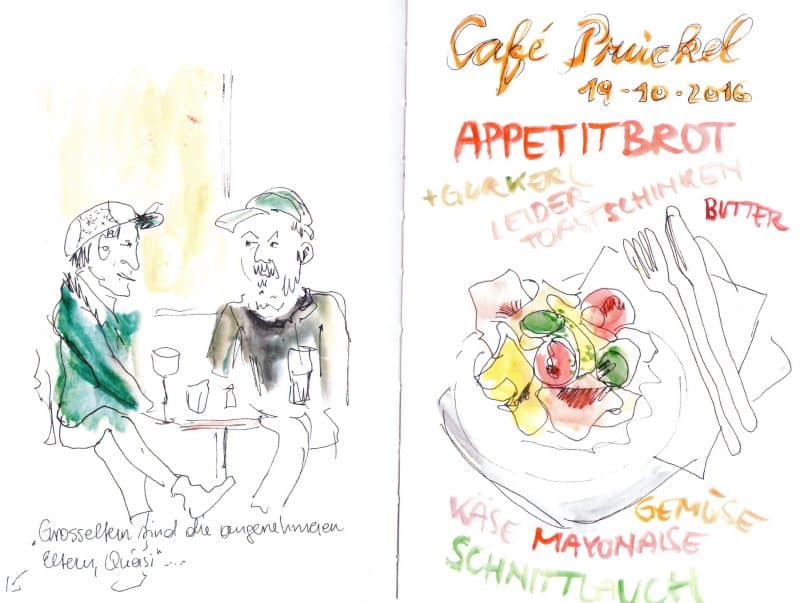 "Grosseltern sind die angenehmeren
Eltern, Quasi"....
15
Café Prückel
19-10-2016
APPETITBROT
+GURKERL
LEIDER
TOASTSCHINKEN
BUTTER
KÄSE
GEMÜSE
MAYONAISE
SCHNITTLAUCH